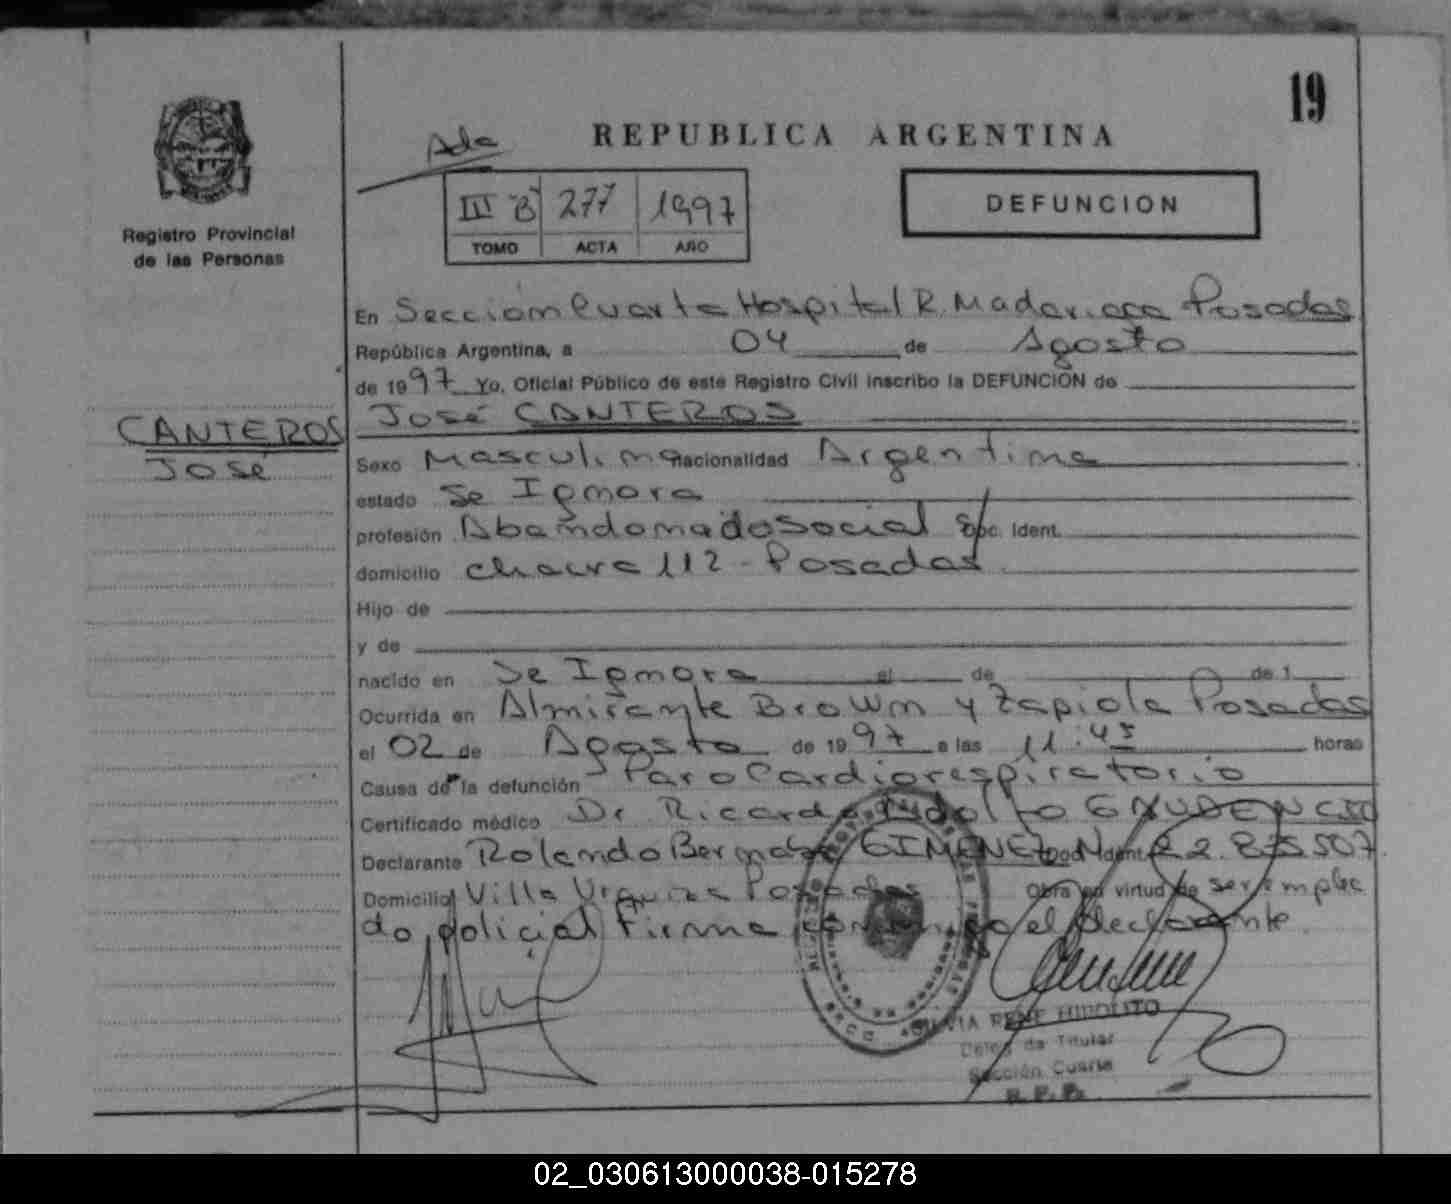 19
REPUBLICA ARGENTINA
Ada
III B 277 1997
TOMO ACTA AÑO
DEFUNCION
Registro Provincial
de las Personas
CANTEROS
José
En Sección Cuarta Hospital R. Madariaga Posadas
República Argentina, a 04 de Agosto
de 1997 Yo, Oficial Público de este Registro Civil inscribo la DEFUNCION de
José CANTEROS
Sexo Masculino nacionalidad Argentina
estado Se Ignora
profesión Abandonado social Doc. Ident.
domicilio chacra 112 - Posadas
Hijo de
y de
nacido en Se Ignora el de de 1
Ocurrida en Almirante Brown y Zapiola Posadas
el 02 de Agosto de 1997 a las 11:45 horas
Causa de la defunción Paro Cardiorespiratorio
Certificado médico Dr Ricardo Adolfo
Declarante Rolando GIMENEZ Doc. Ident. 22.875.507
Domicilio Villa Urquiza Posadas Obra en virtud de ser emplea
do policial Firma conmigo el declarante.
SILVIA RENE HIPOLITO
Deleg de Titular
Sección Cuarta
R.P.P.
02_030613000038-015278